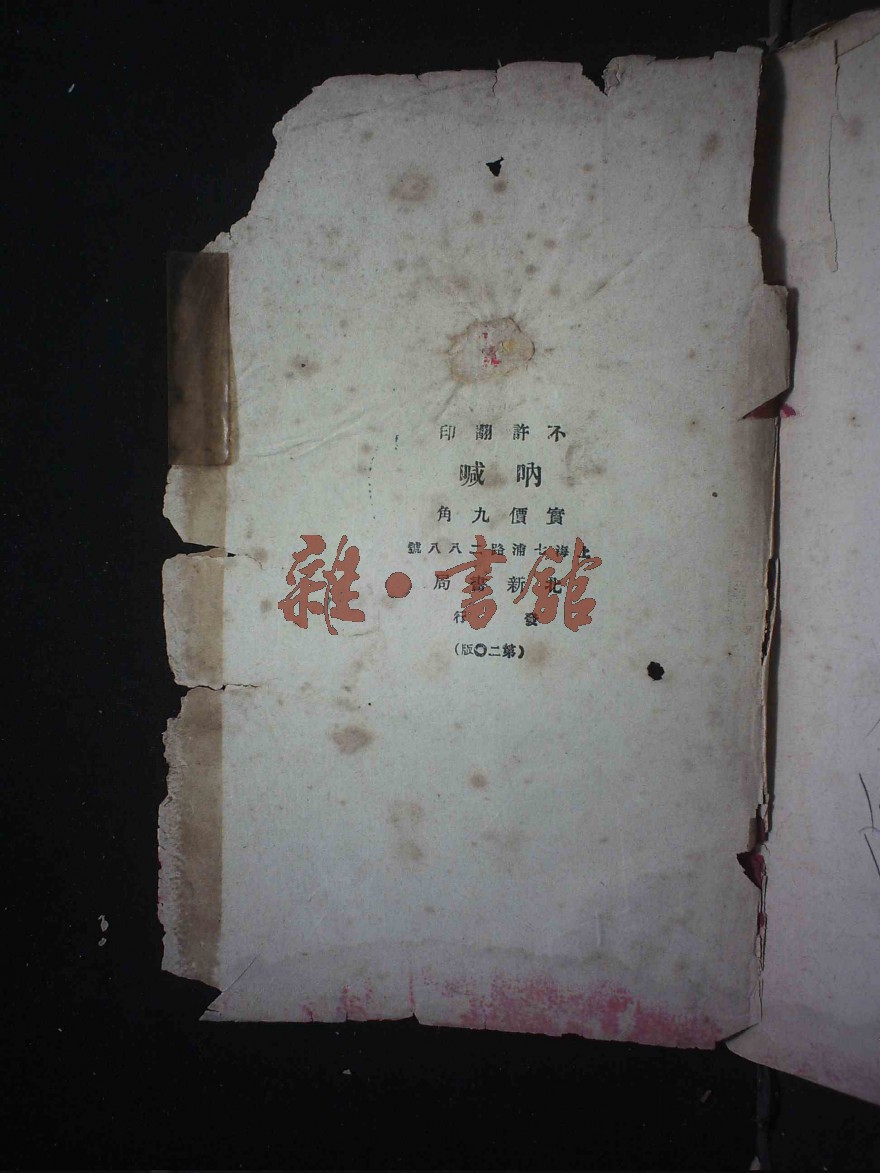 不許翻印
吶喊
實價九角
上海七浦路二八八號
北新書局
發行
(第二〇版)
雜·書館